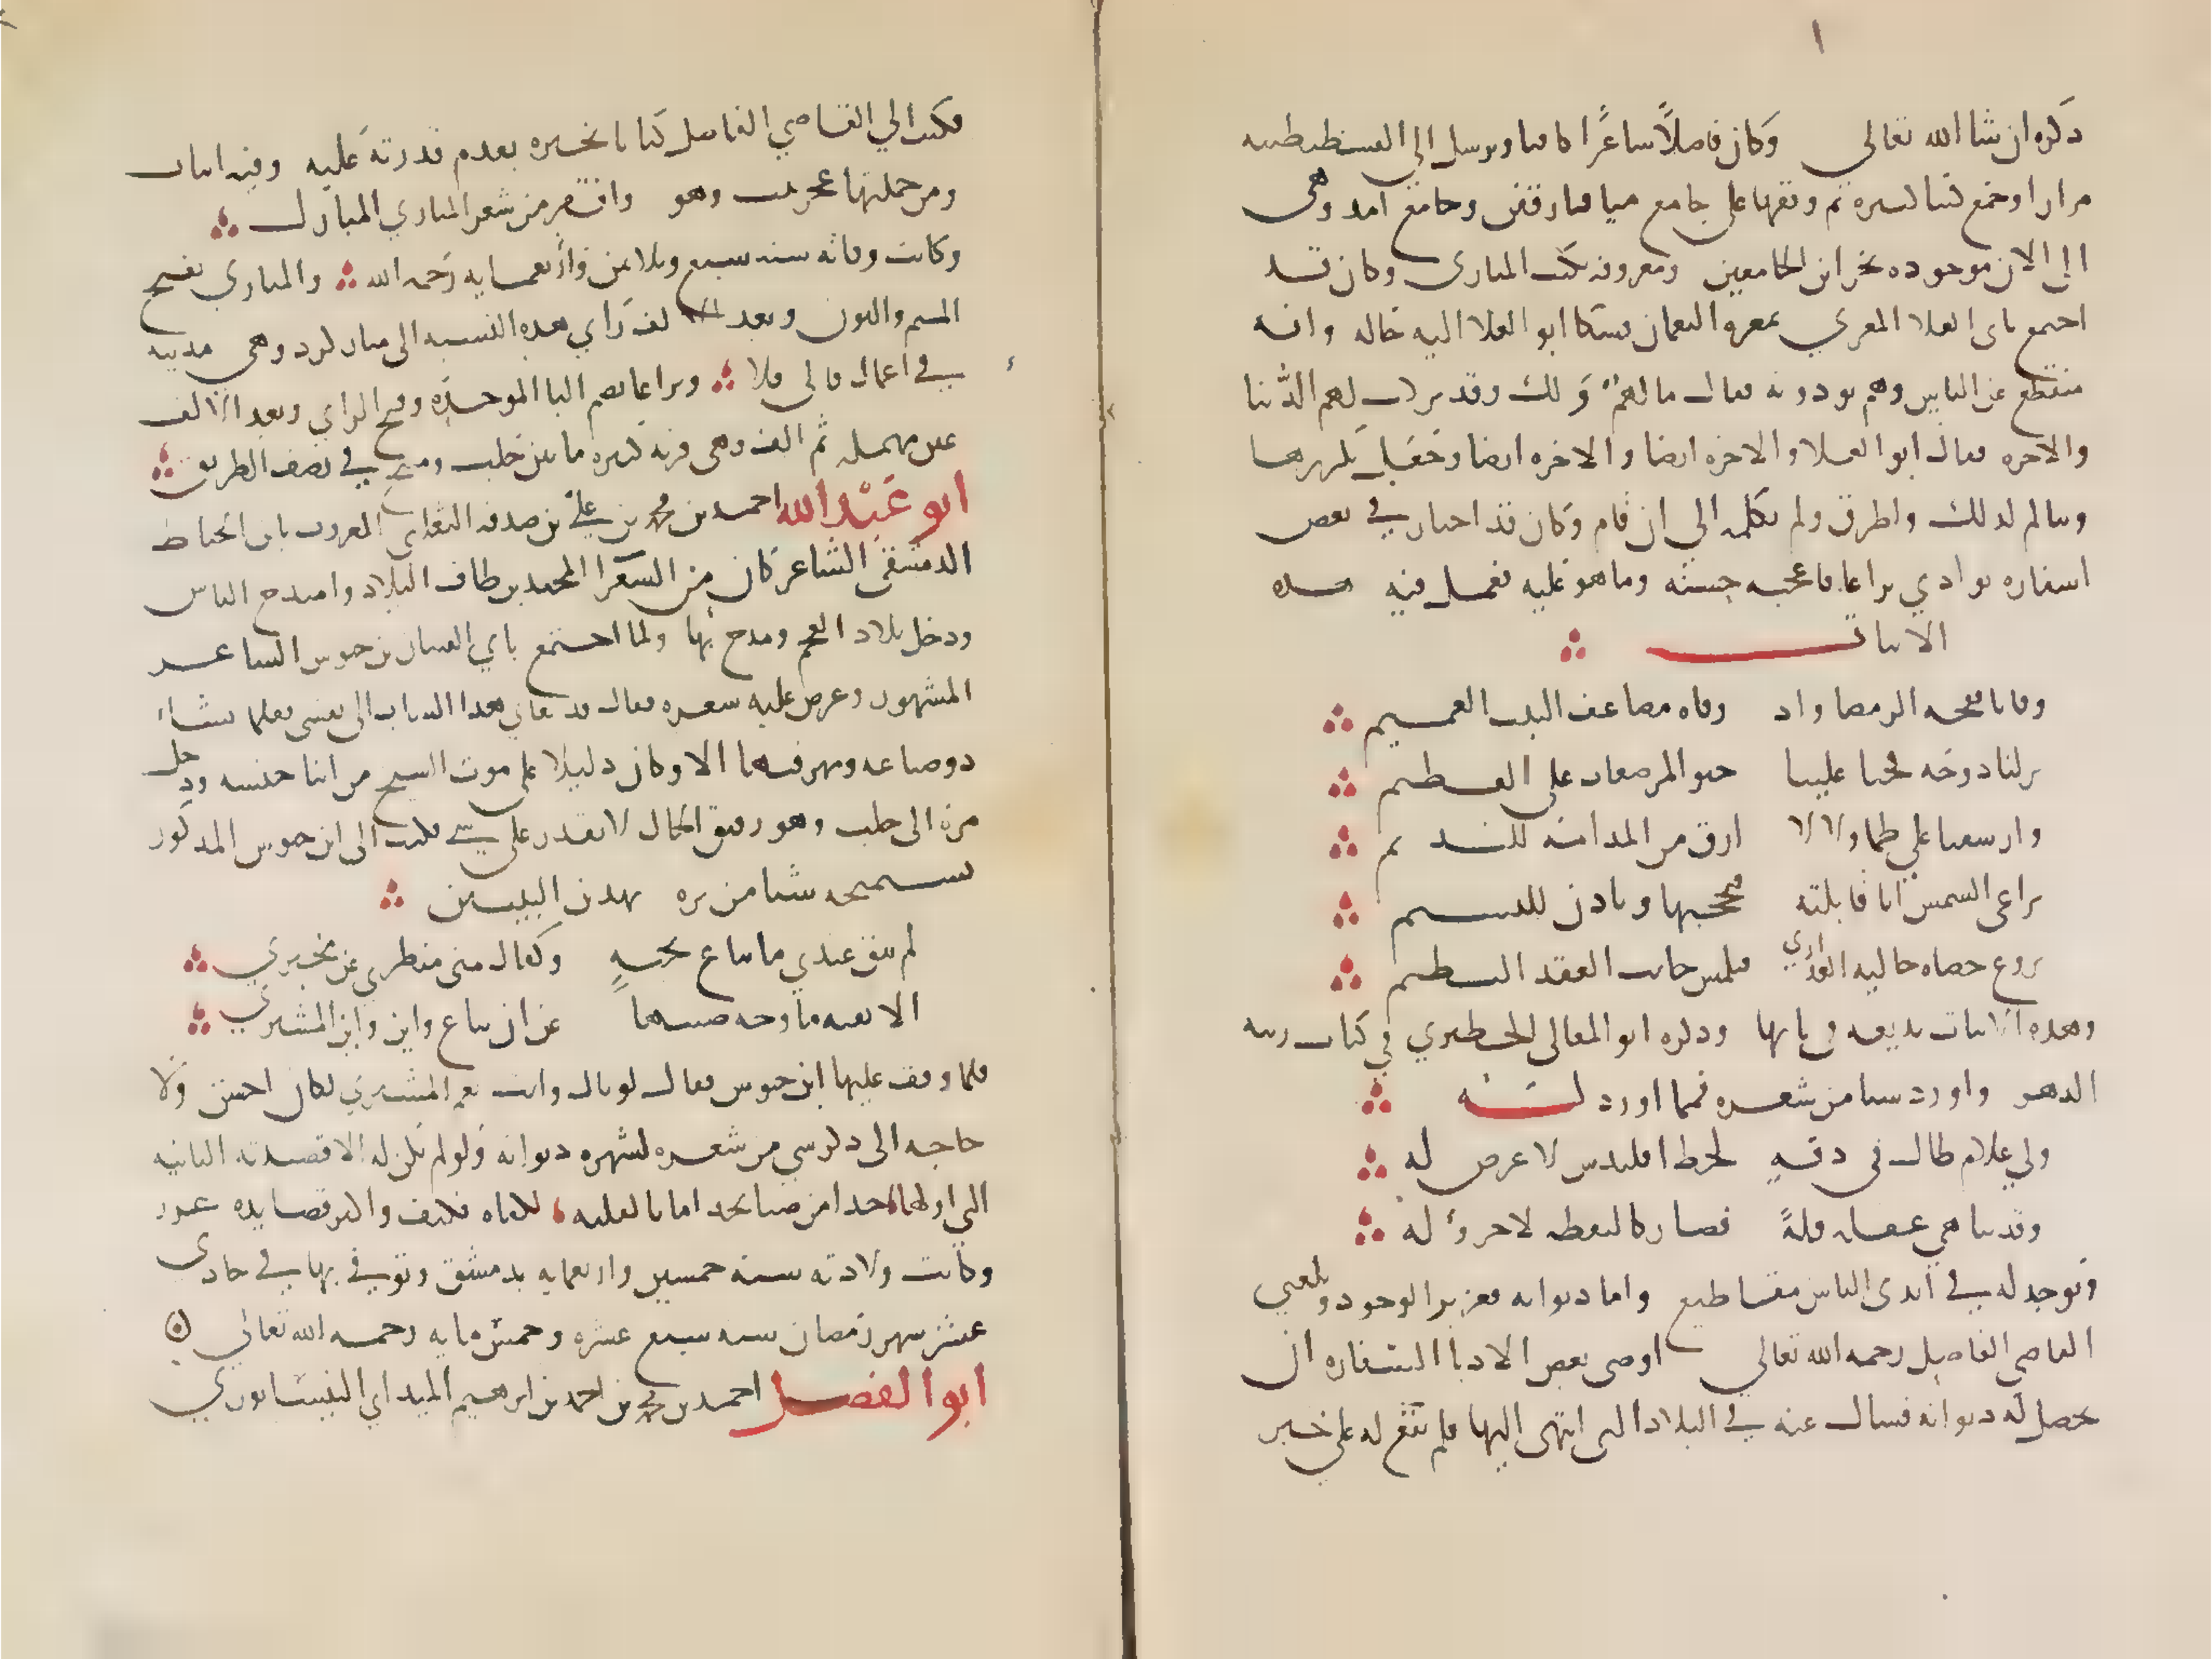 ١
ذكره ان شا الله تعالى وكان فاضلاً شاعرًا كافيا وترسل الى القسطنطينيه
مرارا وجمع كتبا كثيره ثم وقفها على جامع ميا فارقين وجامع امد وهى
الى الان موجوده بخزاين الجامعين ومعروفه بكتب المنازى وكان قد
اجتمع بابى العلا المعري بمعره النعمان فشكا ابو العلا اليه حاله وانه
منقطع عن الناس وهم يوذونه فقال مالهم ولك وقد تركت لهم الدنيا
والاخره فقال ابو العلا والاخره ايضا والاخره ايضا وجعل يكررها
ويتالم لذلك واطرق ولم يكلمه الى ان قام وكان قد اجتاز في بعض
اسفاره بوادي بزاعا فاعجبه حسنه وما هو عليه فعمل فيه هذه
الابيات
وقانا لفحه الرمضا واد وقاه مضاعف النبت العميم
نزلنا دوحه فحنا علينا حنو المرضعات على الفطيم
وارشفنا على ظما زلالا ارق من المدامه للنديم
يراعى الشمس انا قابلته فيحجبها وياذن للنسيم
تروع حصاه حاليه العذارى فتلمس جانب العقد النظيم
وهذه الابيات بديعه في بابها وذكره ابو المعالى الحظيري في كتاب زينه
الدهر واورد شيا من شعره فمما اورد له
ولي غلام طال في دقهٍ كخط اقليدس لا عرض له
وقد تناهى عقله قلةً فصار كالنقطه لا جزؤ له
وتوجد له في ايدى الناس مقاطيع واما ديوانه فعزيز الوجود وبلغني
ان القاضي الفاضل رحمه الله تعالي اوصى بعض الادبا السفاره ان
يحصل له ديوانه فسال عنه في البلاد التى انتهى اليها فلم يقع له على خبر
فكتب الي القاضي الفاضل كتابا يخبره بعدم قدرته عليه وفيه ابيات
ومن جملتها عجز بيت وهو واقفر من شعر المنازي المنازل
وكانت وفاته سنه سبع وثلاثين واربعمايه رحمه الله والمنازي بفتح
الميم والنون وبعد الالف زاي هذه النسبه الى مناز كرد وهي مدينه
في اعمال قالى قلا وبزاعا بضم البا الموحده وفتح الزاي وبعد الالف
عين مهمله ثم الف وهى قريه كبيره ما بين حلب ومنبج في نصف الطريق
ابو عبْد الله احمد بن محمد بن علي بن صدقه التغلبي المعروف بابن الخياط
الدمشقى الشاعر كان من الشعرا المجيدين طاف البلاد وامتدح الناس
ودخل بلاد العجم ومدح بها ولما اجتمع بابي الفتيان بن حيوس الشاعر
المشهور وعرض عليه شعره فقال قد نعاني هذا الشاب الى نفسى فقلما نشا
ذو صناعه ومهر فيها الا وكان دليلا على موت الشيخ من ابنا جنسه ودخل
مره الى حلب وهو رقيق الحال لا يقدر على شي فكتب الى ابن حيوس المذكور
يستميحه شيا من بره بهذين البيتين
لم يبق عندي ما يباع بحبهٍ وكفاك منى منظري عن مخبري
الا بقيه ما وجه صنتها عن ان تباع واين واين المشتري
فلما وقف عليها ابن حيوس فقال لو قال وانت نعم المشتري لكان احسن ولا
حاجه الى ذكر شي من شعره لشهره ديوانه ولو لم يكن له الا قصيدته البائيه
التي اولها خذا من صبا نجد امانا لقلبه لكفاه فكيف واكثر قصايده غرر
وكانت ولادته سنه خمسين واربعمايه بدمشق وتوفي بها في حادى
عشر شهر رمضان سنه سبع عشره وخمس مايه رحمه الله تعالي
ابوا الفضل احمد بن محمد بن احمد بن ابرهيم الميداني النيسابوري